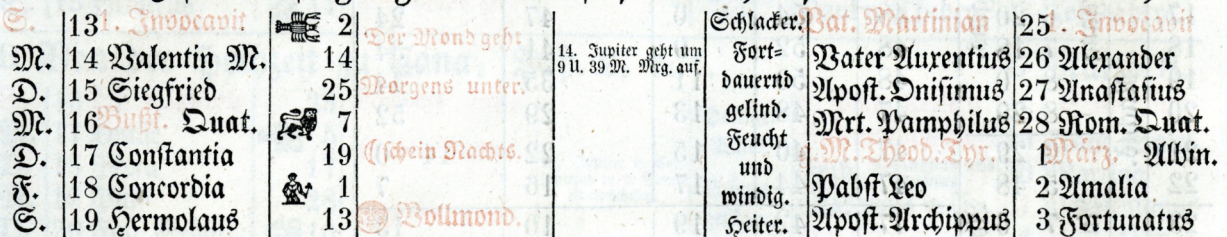 S. 13 1. Invocavit 2 Schlacker. Vat. Martinian 25 1. Invocavit
M. 14 Valentin M. 14 Der Mond geht 14. Jupiter geht um 9 U. 39 M. Mrg. auf. Fort= Vater Auxentius 26 Alexander
D. 15 Siegfried 25 Morgens unter. dauernd Apost. Onisimus 27 Anastasius
M. 16 Bußt. Quat. 7 gelind. Mrt. Pamphilus 28 Rom. Quat.
D. 17 Constantia 19 ☾schein Nachts. Feucht g. M. Theod. Tyr. 1 März. Albin.
F. 18 Concordia 1 und windig. Pabst Leo 2 Amalia
S. 19 Hermolaus 13 Vollmond. Heiter. Apost. Archippus 3 Fortunatus